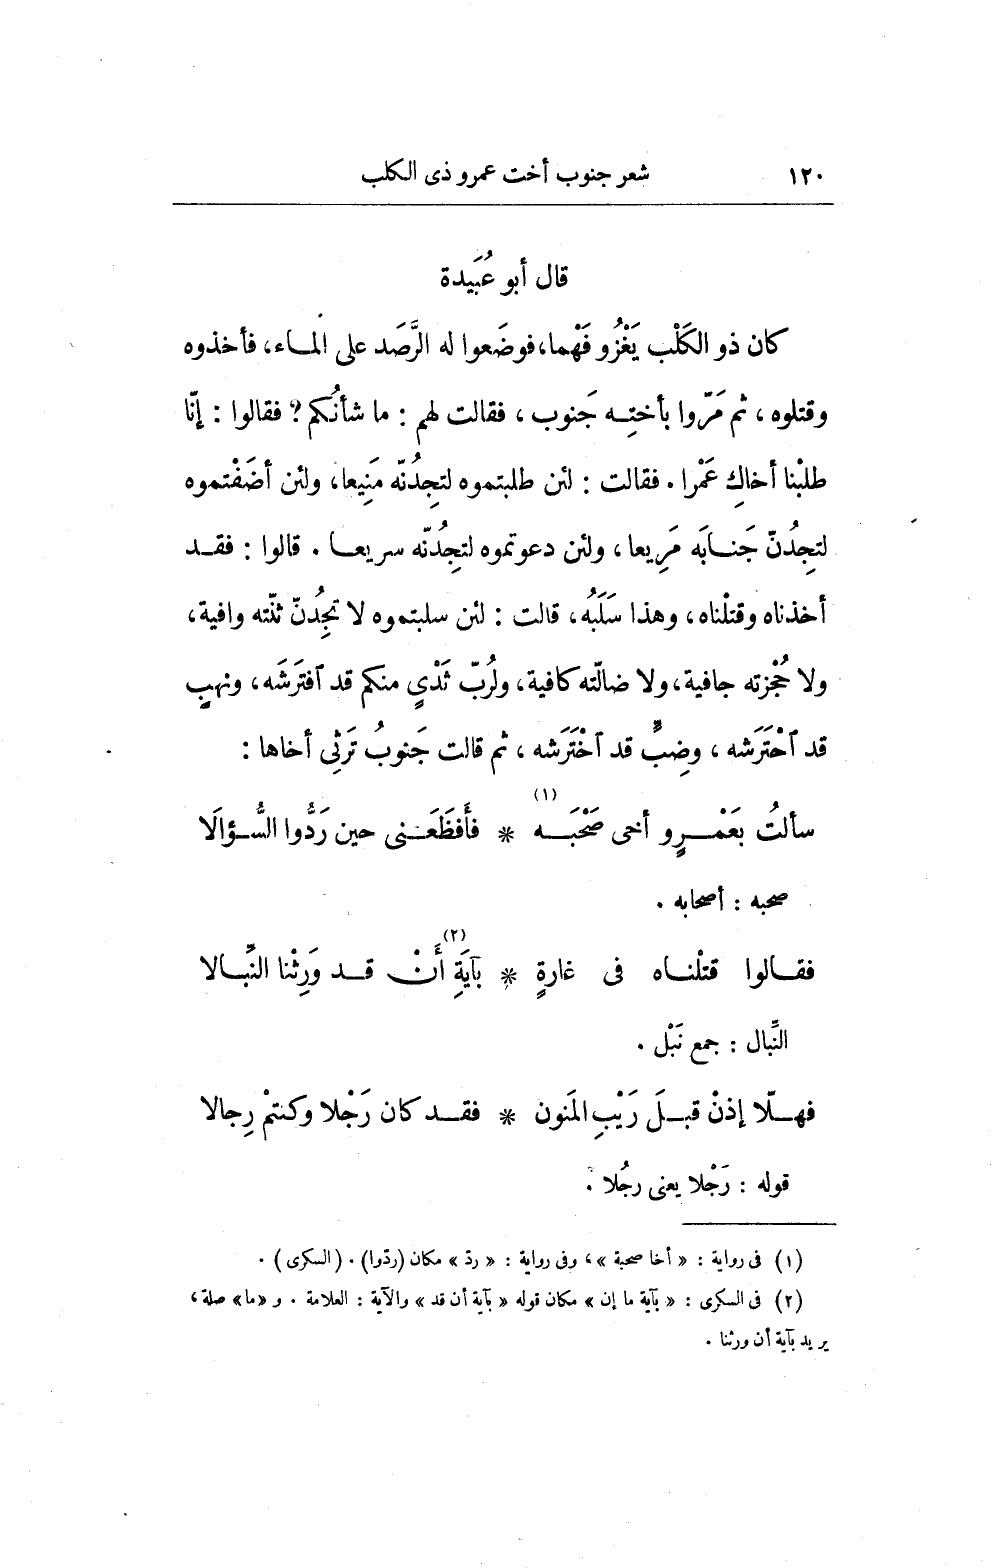 ١٢٠ شعر جنوب أخت عمرو ذى الكلب
قال أبو عُبَيدة
كان ذو الكَلْب يَغْزُو فَهْما، فوضَعوا له الرَّصَد على المـاء، فأخذوه
وقتلوه، ثم مَرّوا بأختِـه جَنوب، فقالت لهم : ما شأنُكم؟ فقالوا : إنّا
طلبْنا أخاكِ عَمْرا. فقالت : لئن طلبتموه لتجِدُنّه مَنِيعا، ولئن أضَفْتموه
لتجِدُنّ جَنـابَه مَرِيعا، ولئن دعوتموه لتجِدُنّه سريعـا. قالوا : فقـد
أخذناه وقتلْناه، وهذا سَلَبُه، قالت : لئن سلبتموه لا تجِدُنّ ثُنّته وافية،
ولا حُجْزته جافية، ولا ضالّته كافية، ولُربّ ثَدْيٍ منكم قد ٱفترَشَه، ونهبٍ
قد ٱحْتَرَشه، وضِبٍّ قد ٱخْتَرَشه، ثم قالت جَنوبُ تَرثِى أخاها :
سألتُ بعَمْـرٍو أخى صَحْبَـه (١) * فأَفظَعَـنى حين رَدُّوا السُّـؤالَا
صحبه : أصحابه.
فقـالوا قتلْنـاه فى غارةٍ * بآيَةِ (٢) أَنْ قـد وَرِثْنا النِّبـالا
النِّبال : جمع نَبْل.
فهـلّا إذنْ قبـلَ رَيْبِ المَنون * فقـد كان رَجْلا وكنتمْ رِجالا
قوله : رَجْلا يعنى رجُلا.
(١) فى رواية : « أخا صحبة »، وفى رواية : « ردّ » مكان (ردّوا). (السكرى).
(٢) فى السكرى : « بآية ما إن » مكان قوله « بآية أن قد » والآية : العلامة. و «ما» صلة،
يريد بآية أن ورثنا.